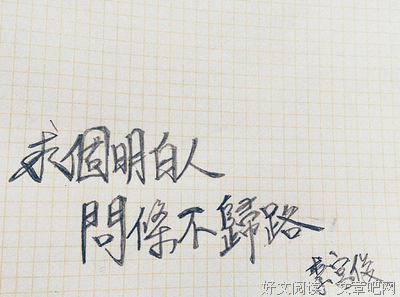 求個明白人
問條不歸路
李宮俊
好文阅读 文章吧网